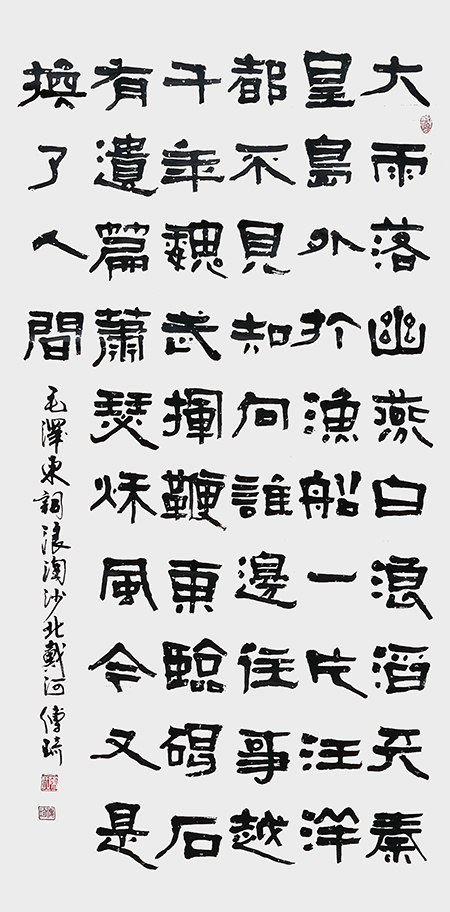 大雨落幽燕白浪滔天秦
皇島外打漁船一片汪洋
都不見知向誰邊往事越
千年魏武揮鞭東臨碣石
有遺篇蕭瑟秋風今又是
換了人間
毛澤東詞浪淘沙北戴河 傅琦